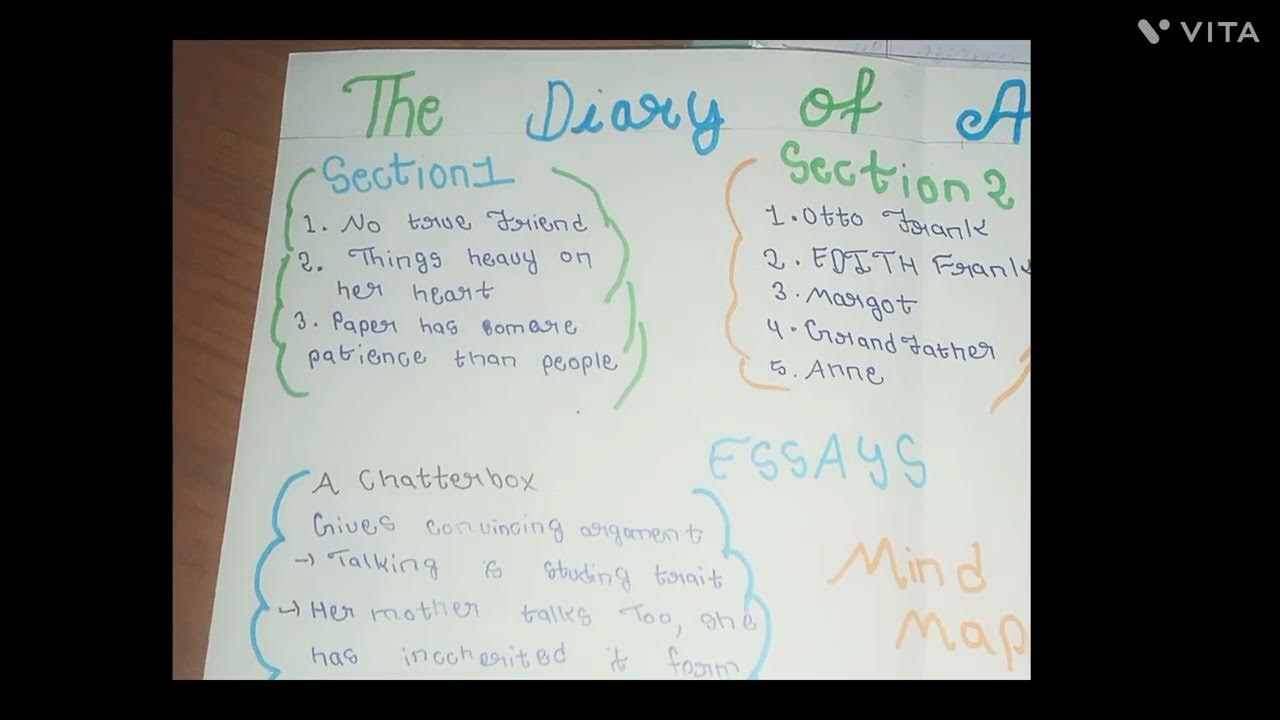 VITA
The Diary of A
Section 1
1. No true Friend
2. Things heavy on
her heart
3. Paper has somare
patience than people
Section 2
1. Otto Frank
2. EDITH Frank
3. Margot
4. Grandfather
5. Anne
ESSAYS
A Chatterbox
Gives convincing argament
→ Talking is studing trait
→ Her mother talks Too, she
has incoherited it form
Mind
Map